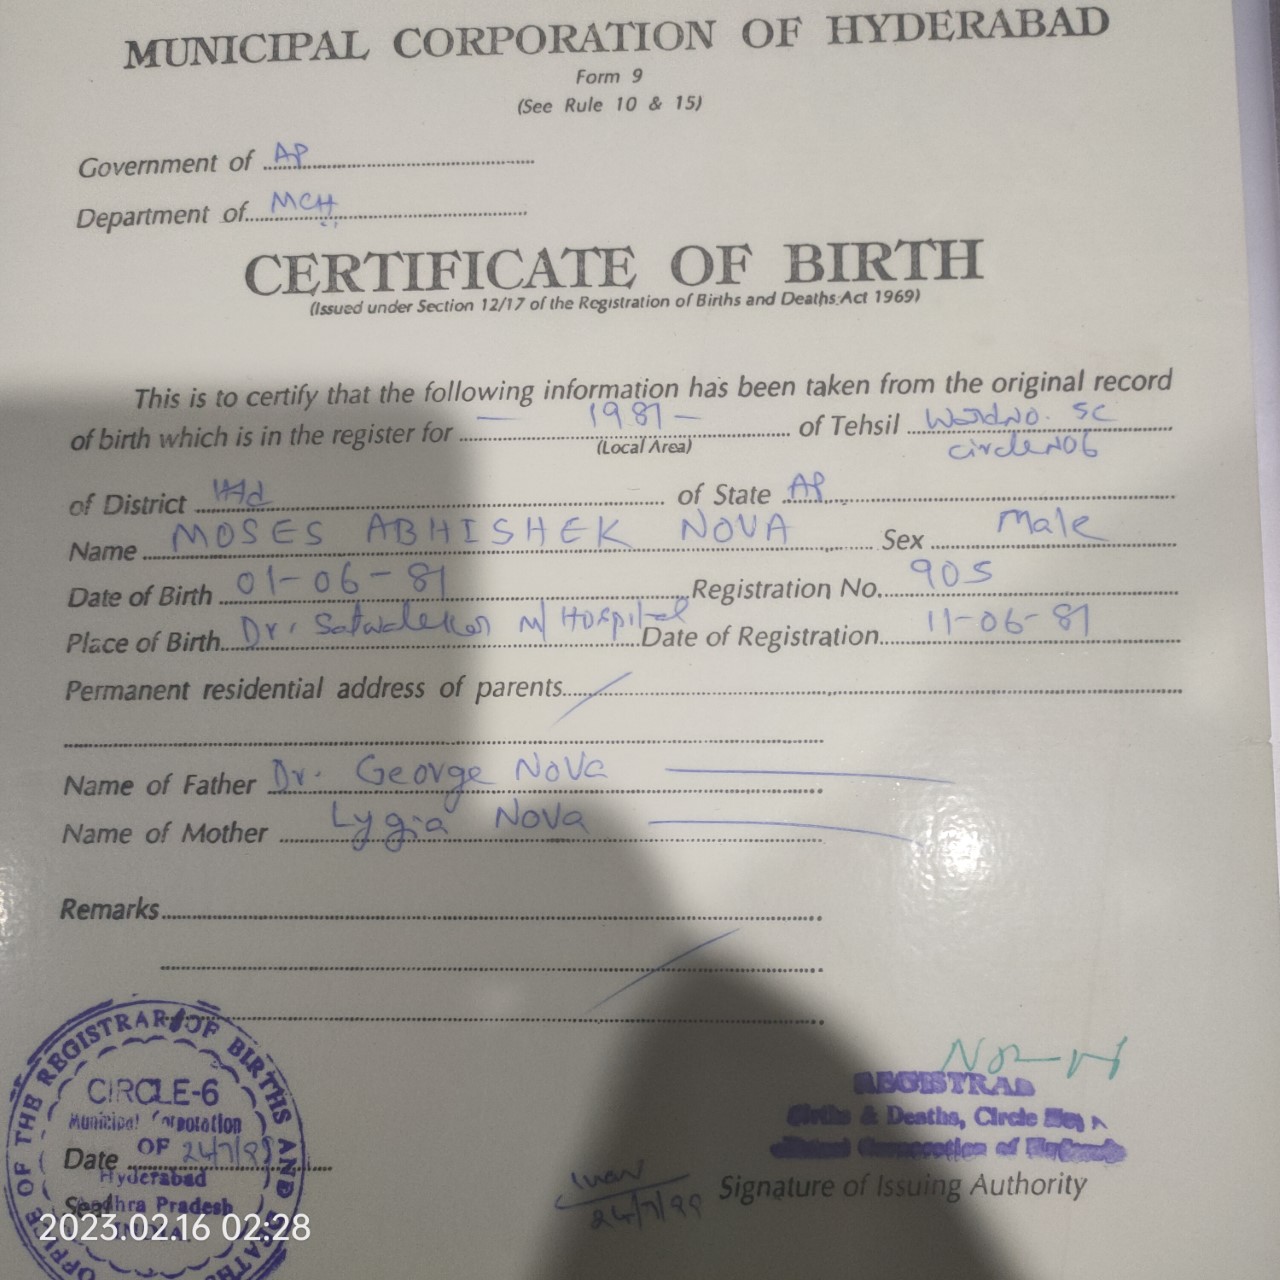 MUNICIPAL CORPORATION OF HYDERABAD
Form 9
(See Rule 10 & 15)
Government of AP
Department of MCH
CERTIFICATE OF BIRTH
(Issued under Section 12/17 of the Registration of Births and Deaths Act 1969)
This is to certify that the following information has been taken from the original record
of birth which is in the register for — 1981 — of Tehsil Ward No. 5C
(Local Area) circle No 6
of District Hd of State AP
Name MOSES ABHISHEK NOVA Sex Male
Date of Birth 01-06-81 Registration No. 905
Place of Birth Dr. Satwalekar M/ Hospital Date of Registration 11-06-81
Permanent residential address of parents
Name of Father Dr. George Nova
Name of Mother Lygia Nova
Remarks
OFFICE OF THE REGISTRAR OF BIRTHS AND DEATHS
CIRCLE-6
Municipal Corporation
OF
Hyderabad
Andhra Pradesh
INDIA
Date 24/7/99
Seal
REGISTRAR
Births & Deaths, Circle No.
Corporation of
24/7/99
Signature of Issuing Authority
2023.02.16 02:28